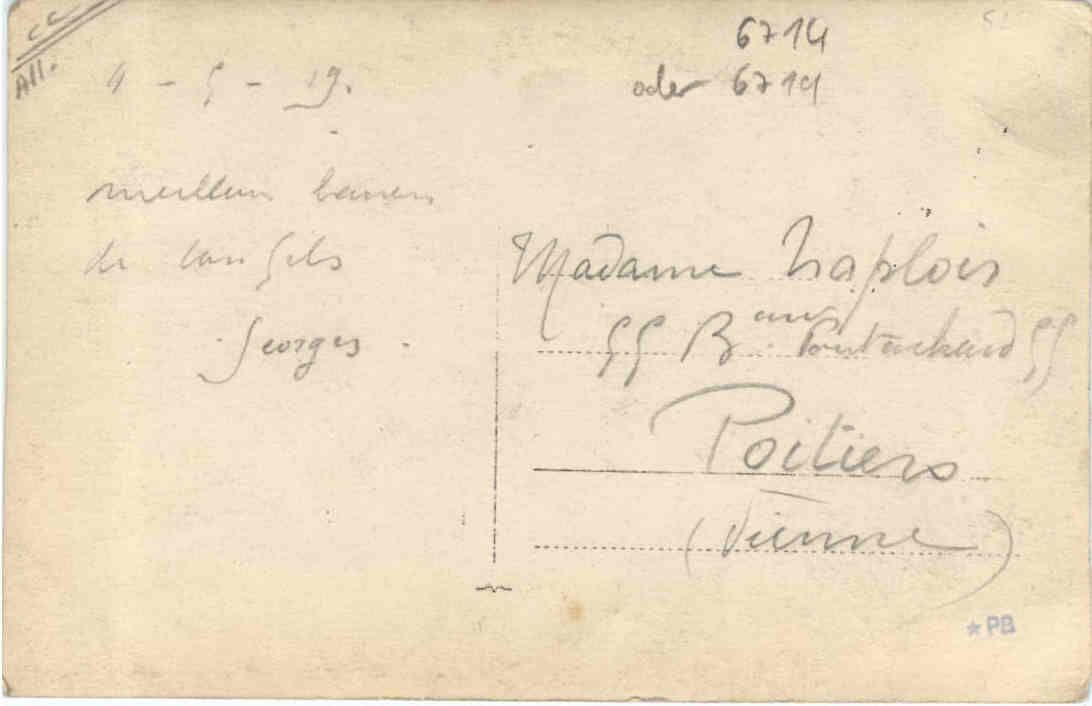 All.
6714
oder 6714
4 - 5 - 19.
meilleurs baisers
de ton fils
Georges.
Madame
55 Bard Pont Achard 55
Poitiers
(Vienne)
PB